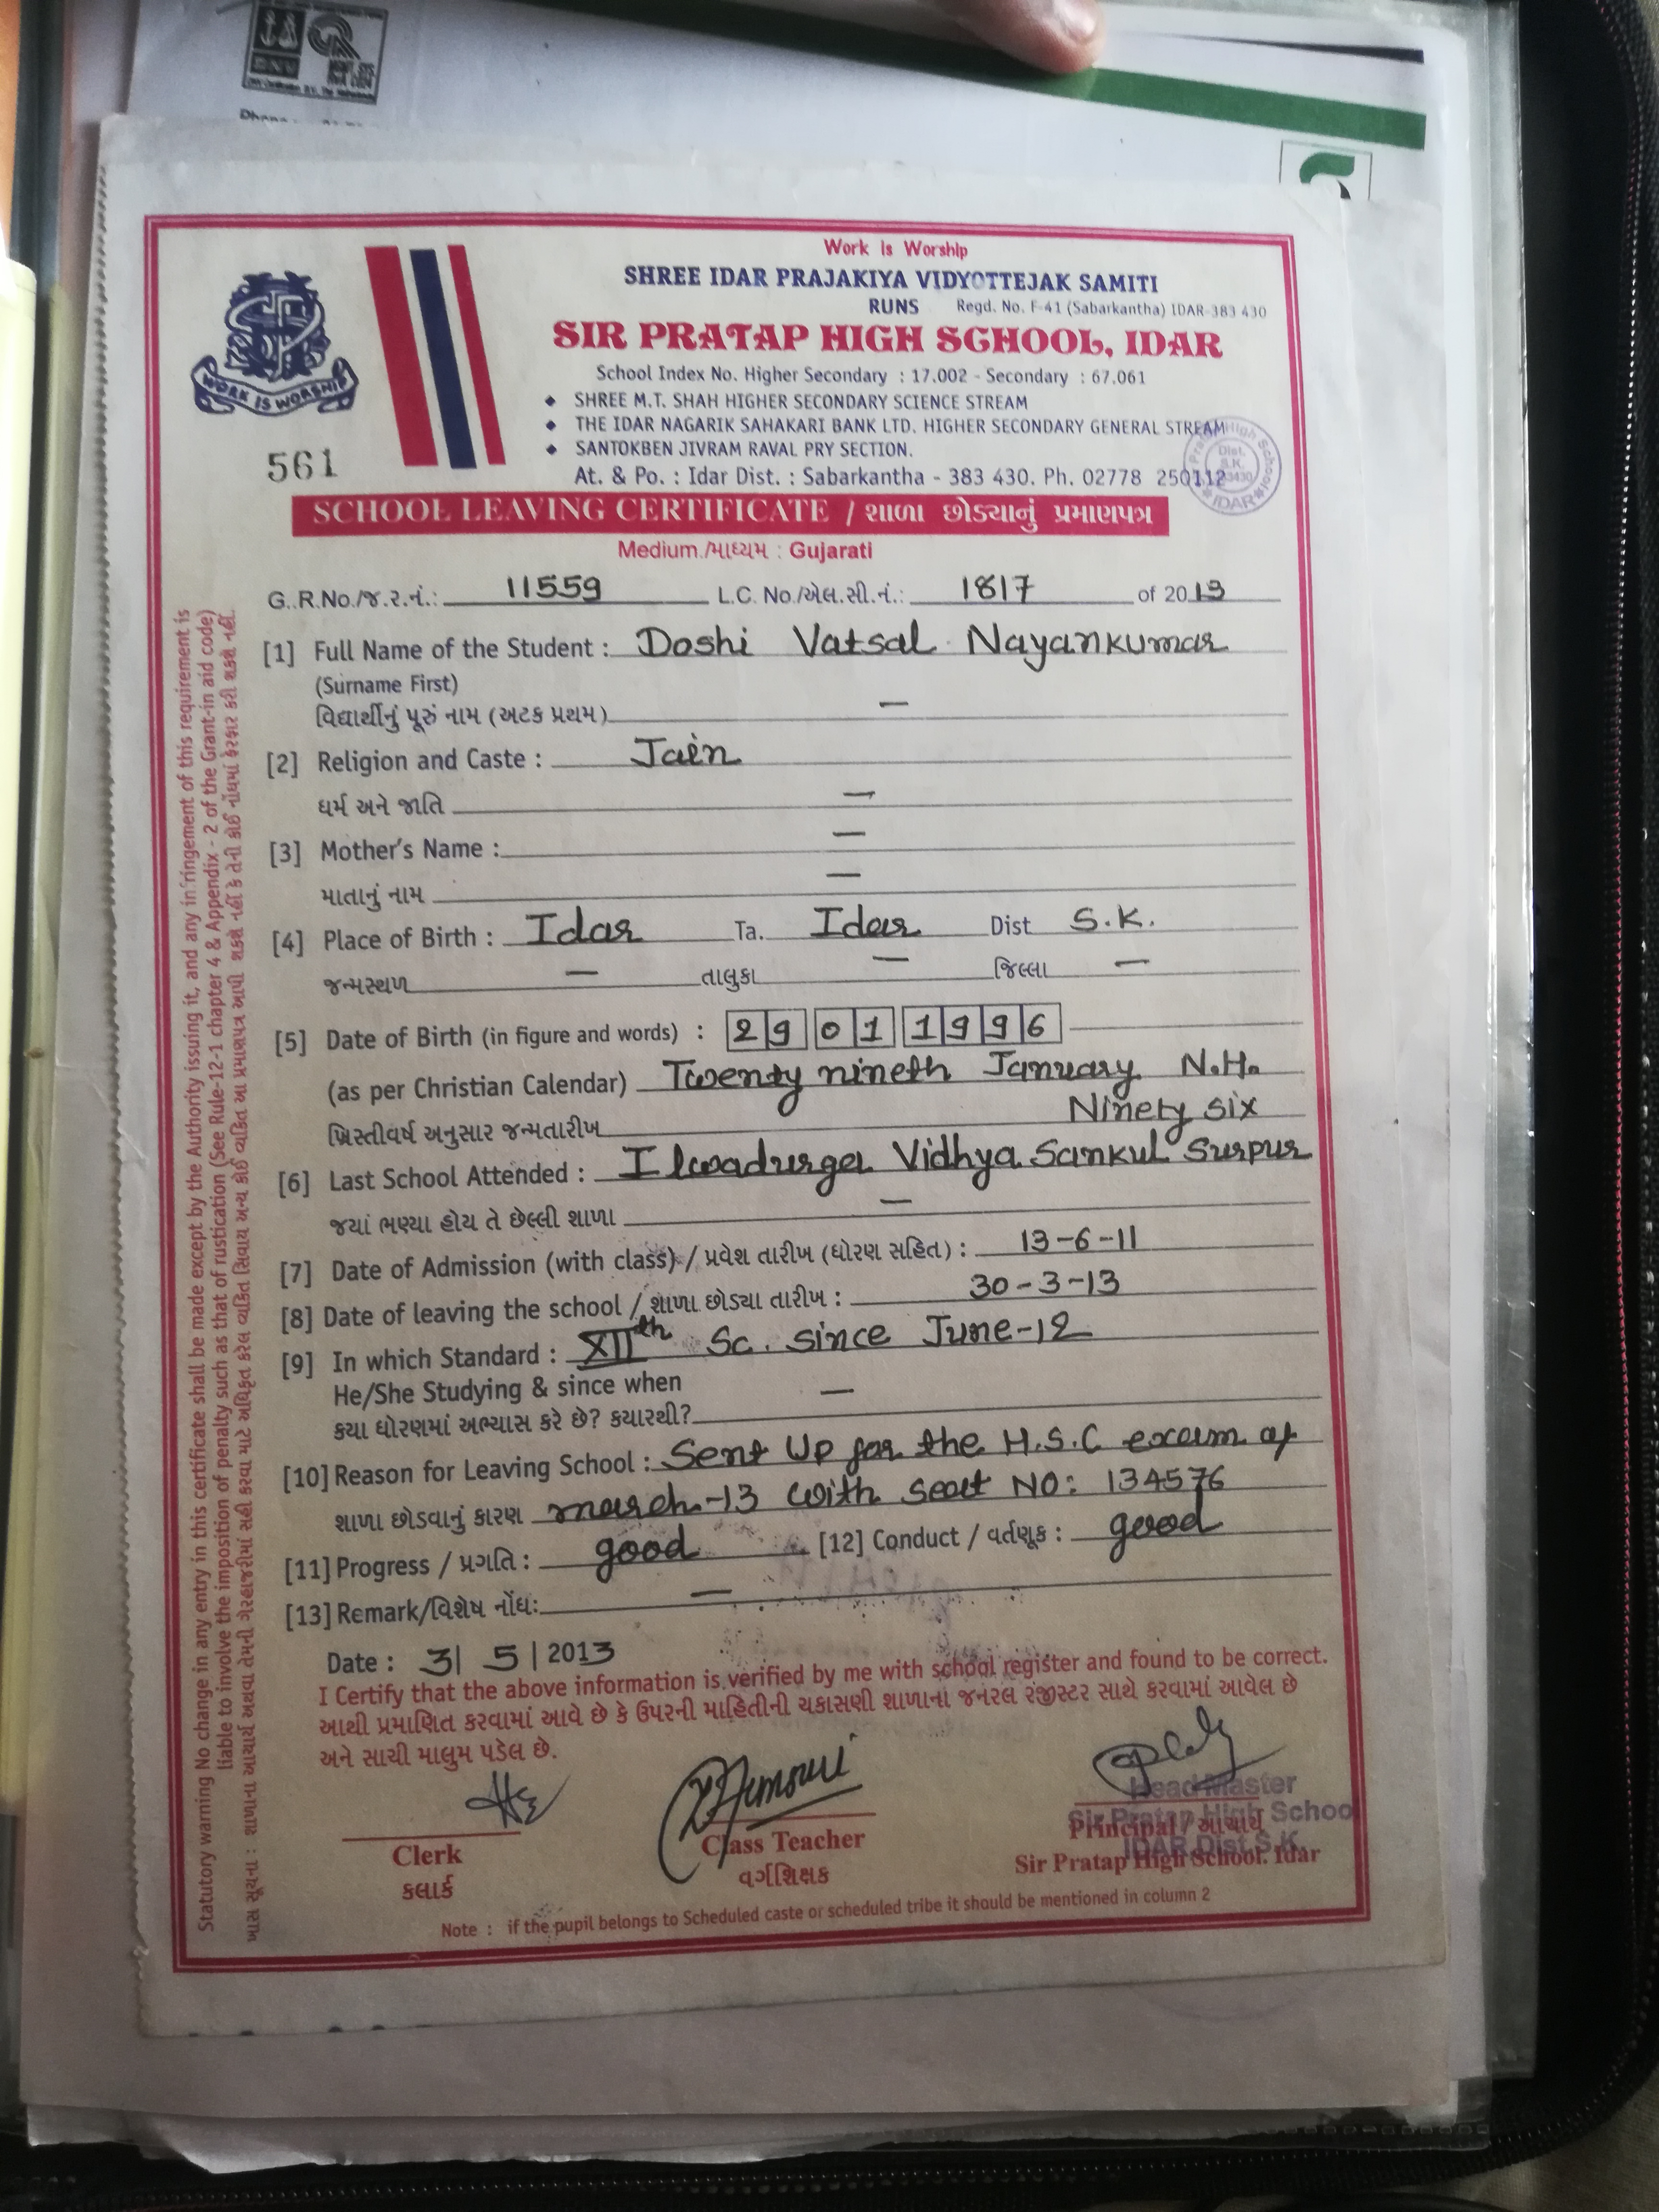 Work is Worship
SHREE IDAR PRAJAKIYA VIDYOTTEJAK SAMITI
RUNS Regd. No. F-41 (Sabarkantha) IDAR-383 430
SIR PRATAP HIGH SCHOOL, IDAR
School Index No. Higher Secondary : 17.002 - Secondary : 67.061
SHREE M.T. SHAH HIGHER SECONDARY SCIENCE STREAM
THE IDAR NAGARIK SAHAKARI BANK LTD. HIGHER SECONDARY GENERAL STREAM
SANTOKBEN JIVRAM RAVAL PRY SECTION.
At. & Po. : Idar Dist. : Sabarkantha - 383 430. Ph. 02778 250112
WORK IS WORSHIP
561
SCHOOL LEAVING CERTIFICATE / શાળા છોડ્યાનું પ્રમાણપત્ર
Medium./માધ્યમ : Gujarati
G..R.No./જ.ર.નં.: 11559 L.C. No./એલ.સી.નં.: 1817 of 2013
[1] Full Name of the Student : Doshi Vatsal Nayankumar
(Surname First)
વિદ્યાર્થીનું પૂરું નામ (અટક પ્રથમ) —
[2] Religion and Caste : Jain
ધર્મ અને જાતિ —
[3] Mother's Name : —
માતાનું નામ —
[4] Place of Birth : Idar Ta. Idar Dist S.K.
જન્મસ્થળ — તાલુકા — જિલ્લા —
[5] Date of Birth (in figure and words) : 29 01 1996
(as per Christian Calendar) Twenty nineth January N.H.
Ninety six
ખ્રિસ્તીવર્ષ અનુસાર જન્મતારીખ
[6] Last School Attended : Ilwadurga Vidhya Sankul Surpur
જયાં ભણ્યા હોય તે છેલ્લી શાળા —
[7] Date of Admission (with class) / પ્રવેશ તારીખ (ધોરણ સહિત) : 13-6-11
[8] Date of leaving the school / શાળા છોડ્યા તારીખ : 30-3-13
[9] In which Standard : XIIth Sc. since June-12
He/She Studying & since when —
કયા ધોરણમાં અભ્યાસ કરે છે? કયારથી?
[10] Reason for Leaving School : Sent Up for the H.S.C exam of
શાળા છોડવાનું કારણ march-13 with seat NO: 134576
[11] Progress / પ્રગતિ : good [12] Conduct / વર્તણૂક : good
[13] Remark/વિશેષ નોંધ: —
Date : 3/ 5 / 2013
I Certify that the above information is verified by me with school register and found to be correct.
આથી પ્રમાણિત કરવામાં આવે છે કે ઉપરની માહિતીની ચકાસણી શાળાના જનરલ રજીસ્ટર સાથે કરવામાં આવેલ છે
અને સાચી માલુમ પડેલ છે.
Head Master
Sir Pratap High School
IDAR Dist. S.K.
Clerk
કલાર્ક
Class Teacher
વર્ગશિક્ષક
Principal / આચાર્ય
Sir Pratap High School. Idar
Note : if the pupil belongs to Scheduled caste or scheduled tribe it should be mentioned in column 2
Statutory warning No change in any entry in this certificate shall be made except by the Authority issuing it, and any infringement of this requirement is
liable to involve the imposition of penalty such as that of rustication (See Rule-12-1 chapter 4 & Appendix - 2 of the Grant-in aid code)
ખાસ સૂચના : શાળાના આચાર્ય અથવા તેમની ગેરહાજરીમાં સહી કરવા માટે અધિકૃત કરેલ વ્યકિત સિવાય અન્ય કોઈ વ્યકિત આ પ્રમાણપત્ર આપી શકશે નહીં કે તેની કોઈ નોંધમાં ફેરફાર કરી શકશે નહીં.